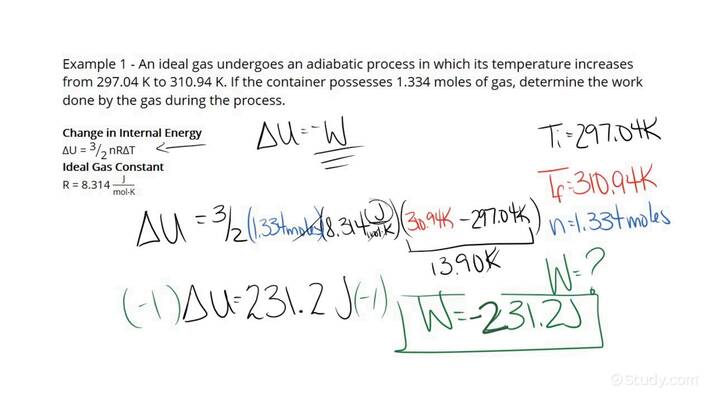 Example 1 - An ideal gas undergoes an adiabatic process in which its temperature increases
from 297.04 K to 310.94 K. If the container possesses 1.334 moles of gas, determine the work
done by the gas during the process.
Change in Internal Energy
ΔU = 3/2 nRΔT
Ideal Gas Constant
R = 8.314 J/mol·K
ΔU = -W
Ti = 297.04K
Tf = 310.94K
n = 1.334 moles
W = ?
ΔU = 3/2 (1.334 moles)(8.314 J/mol·K)(310.94K - 297.04K)
13.90K
(-1) ΔU = 231.2 J (-1)
W = -231.2J
Study.com